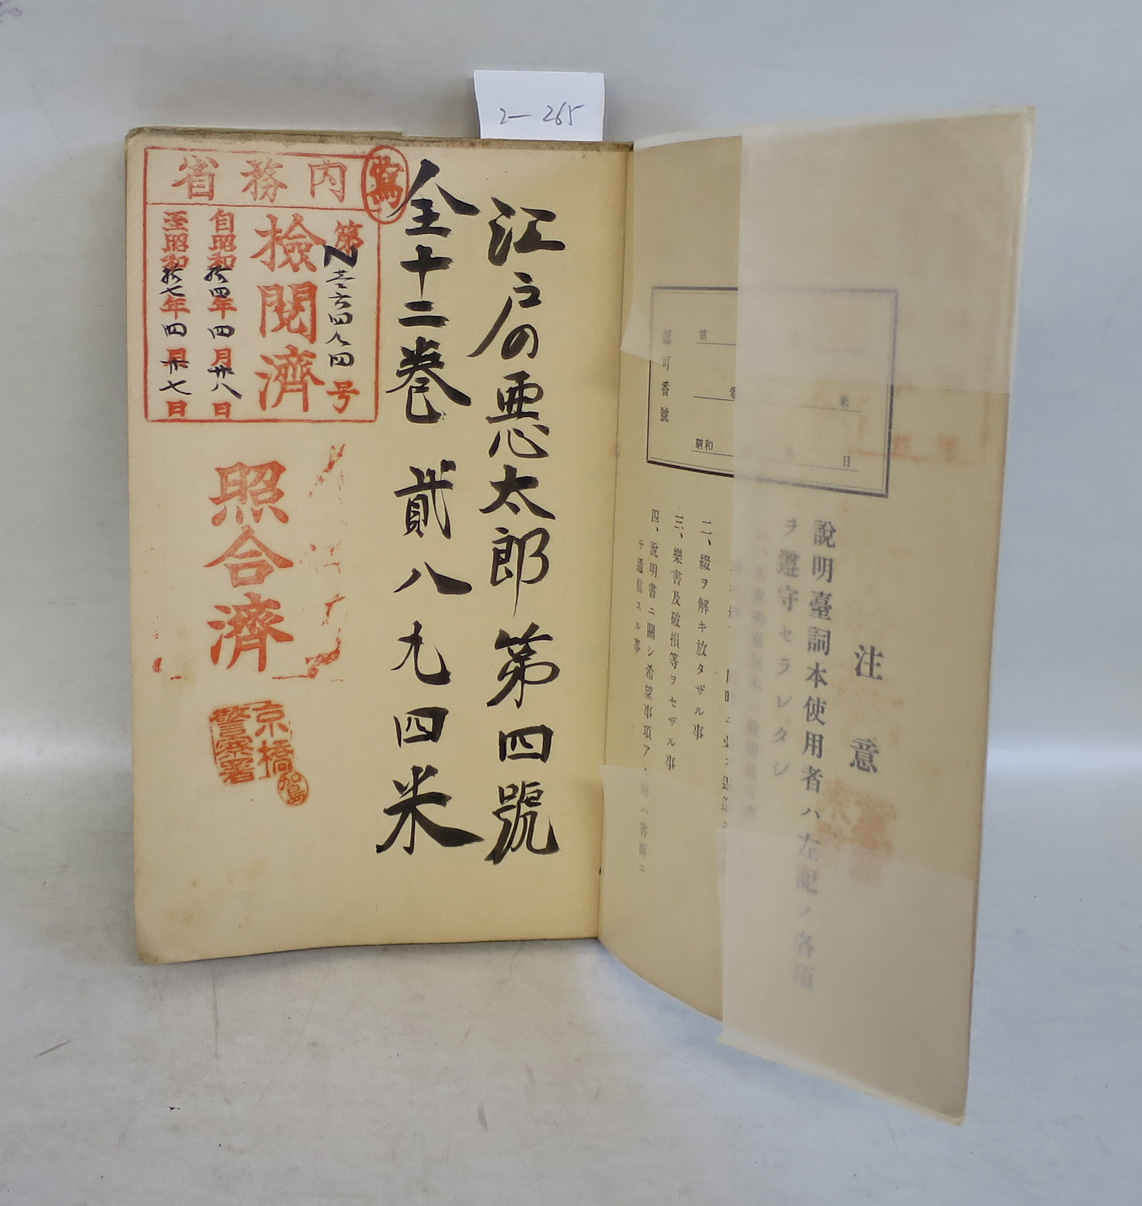 2—265
江戸の悪太郎第四號
全十二巻 貳八九四米
内務省
第N壱六四九四号
檢閲濟
自昭和拾四年四月廿八日
至昭和拾七年四月廿七日
照合濟
京橋
警察署
注意
説明臺詞本使用者ハ左記ノ各項
ヲ遵守セラレタシ
二、綴ヲ解キ放タザル事
三、樂書及破損等ヲセザル事
四、説明書ニ關シ希望事項ア
テ通信スル事
認可番號
第
米
昭和
日